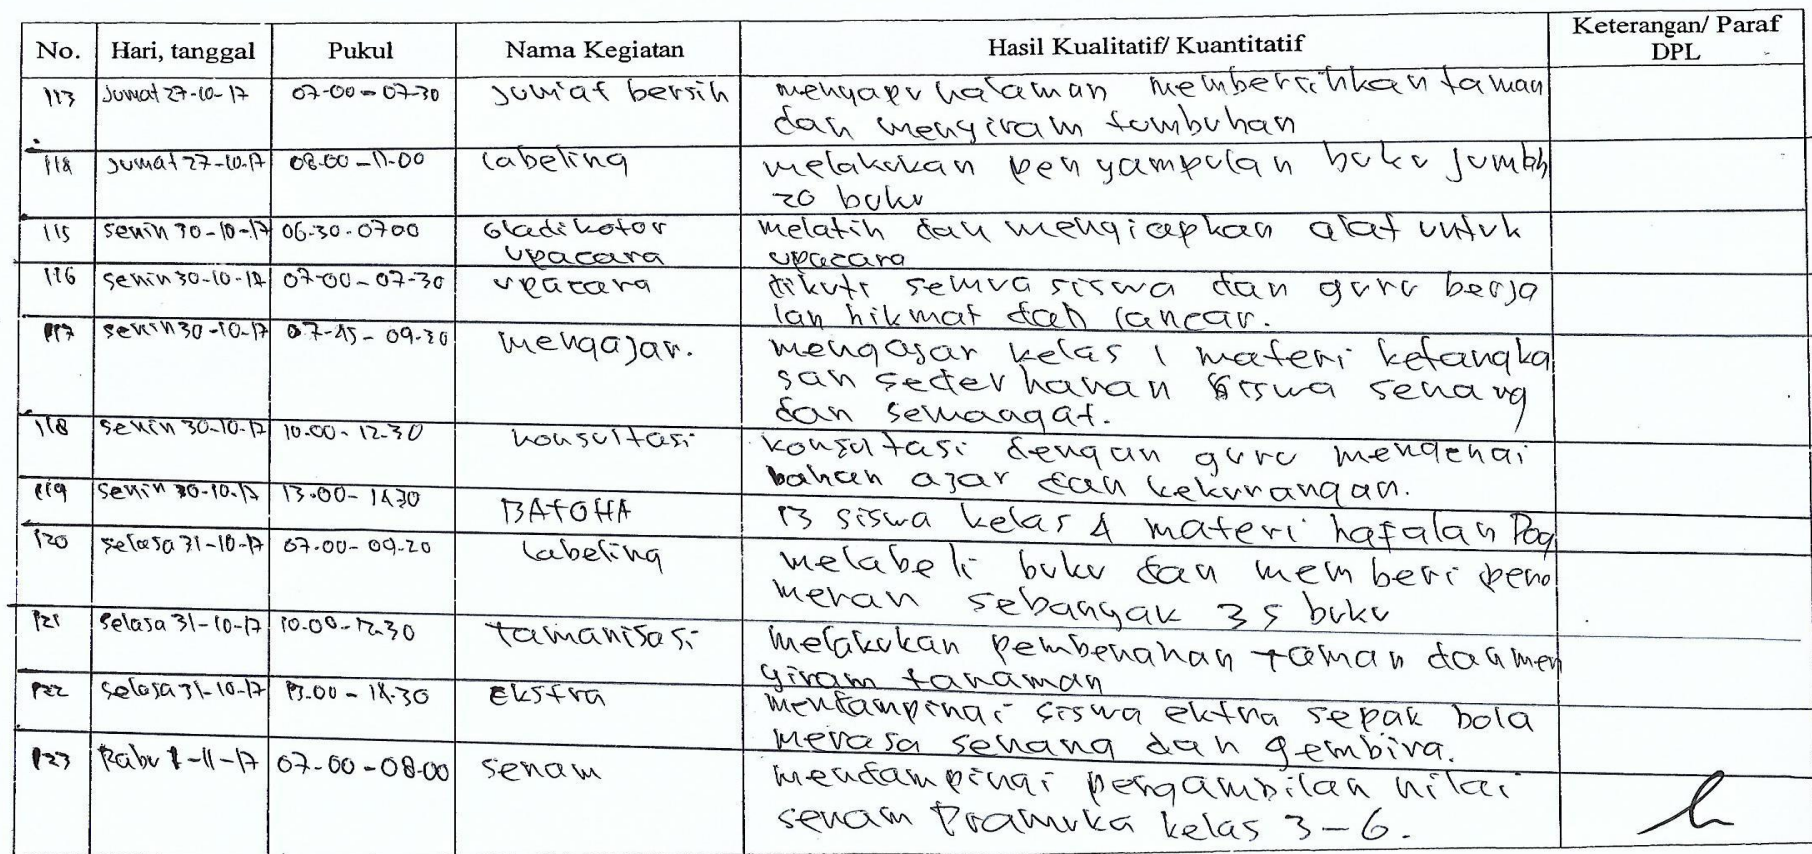 No. Hari, tanggal Pukul Nama Kegiatan Hasil Kualitatif/ Kuantitatif Keterangan/ Paraf DPL
113 Jumat 27-10-17 07-00-07-30 Jum'at bersih menyapu halaman membersihkan taman
dan menyiram tumbuhan
114 Jumat 27-10-17 08.00-11.00 labeling melakukan penyampulan buku jumlah
20 buku
115 Senin 30-10-17 06.30-0700 Gladi kotor upacara melatih dan mengiapkan alat untuk
upacara
116 Senin 30-10-17 07-00-07-30 upacara diikuti semua siswa dan guru berja
lan hikmat dan lancar.
117 Senin 30-10-17 07-45-09.30 mengajar. mengajar kelas 1 materi ketangka
san sederhanan siswa senang
dan semangat.
118 Senin 30-10-17 10.00-12.30 konsultasi konsultasi dengan guru mengenai
bahan ajar dan kekurangan.
119 Senin 30-10-17 13.00-14.30 BATOHA 13 siswa kelas 4 materi hafalan Doa
120 Selasa 31-10-17 07.00-09.20 labeling melabeli buku dan memberi peno
meran sebanyak 35 buku
121 Selasa 31-10-17 10.00-12.30 tamanisasi melakukan pembenahan taman dan men
yiram tanaman
122 Selasa 31-10-17 13.00-14.30 Ekstra mendampingi siswa ektra sepak bola
merasa senang dan gembira.
123 Rabu 1-11-17 07-00-08.00 senam mendampingi pengambilan nilai
senam Pramuka kelas 3-6.